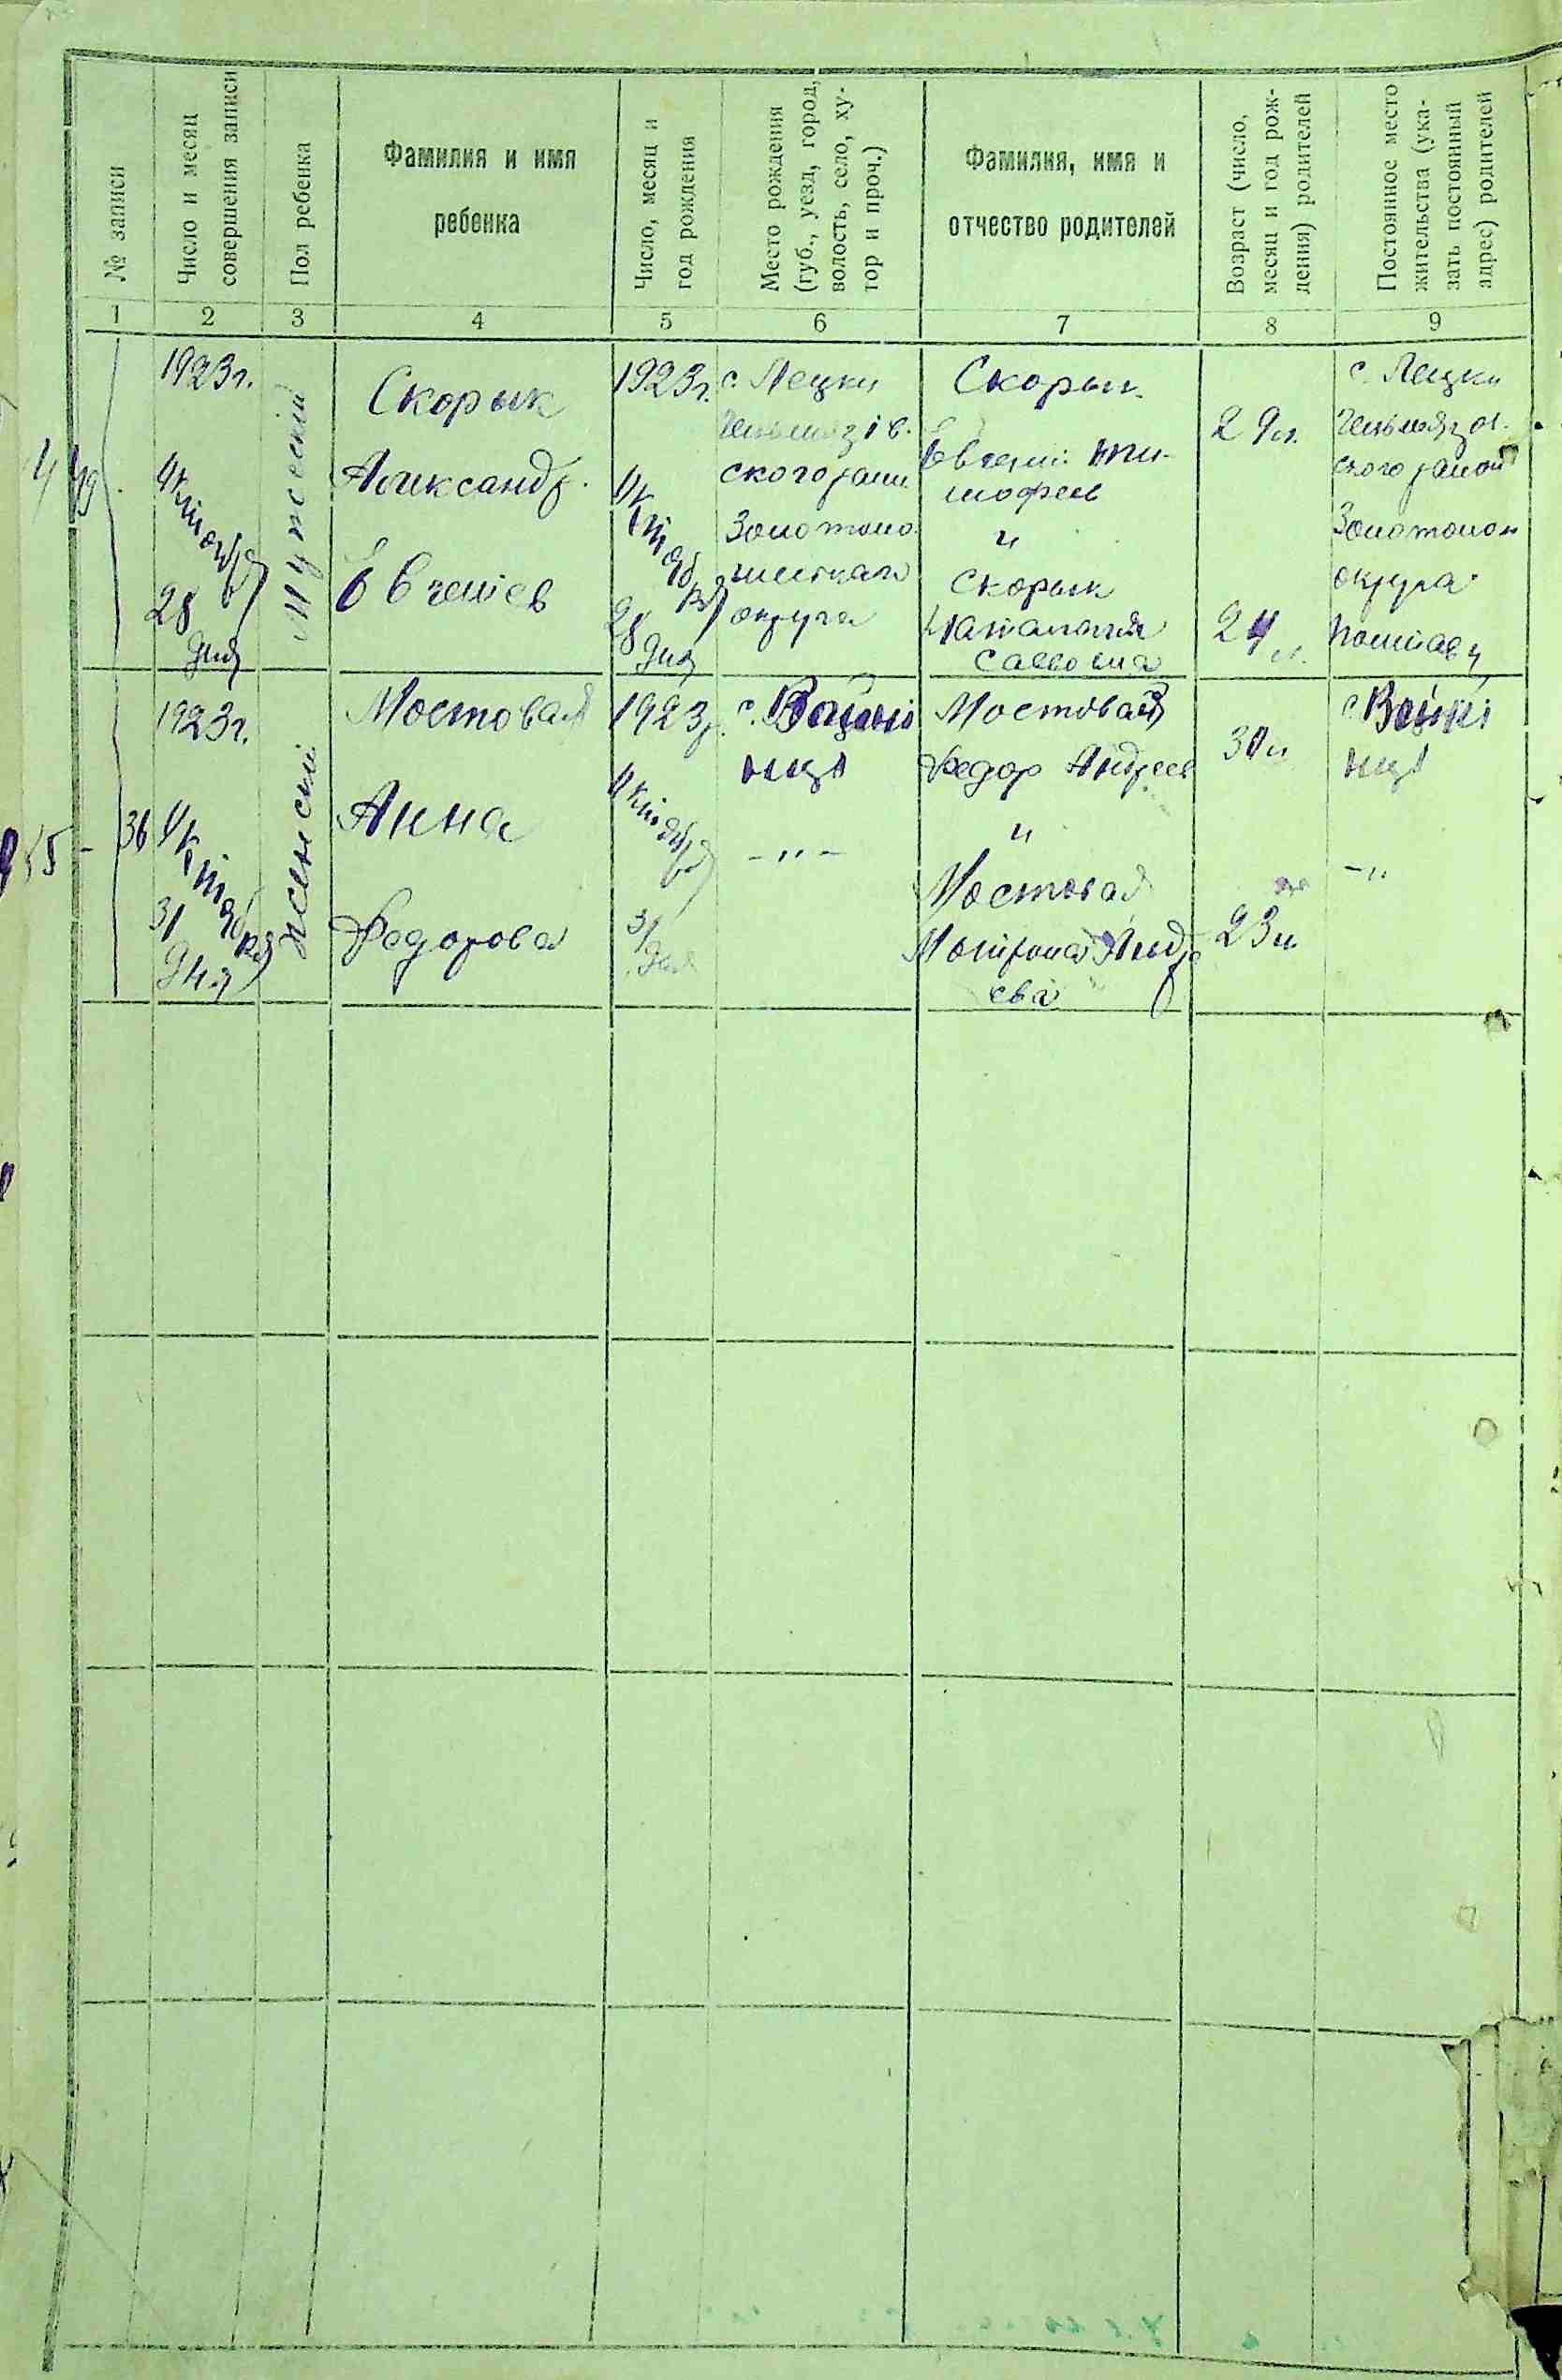 № записи
Число и месяц
совершения записи
Пол ребенка
Фамилия и имя
ребенка
Число, месяц и
год рождения
Место рождения
(губ., уезд, город,
волость, село, ху-
тор и проч.)
Фамилия, имя и
отчество родителей
Возраст (число,
месяц и год рож-
дения) родителей
Постоянное место
жительства (ука-
зать постоянный
адрес) родителей
1 2 3 4 5 6 7 8 9
1923г.
Октября
28
дня
Мужеский
Скорык
Александр
Евгениев
1923г.
Октября
28
дня
с. Лецки
ского
Золотоно
округа
Скорык
Евгений Тим-
офеев
и
Скорык
Наталия
Саввовна
29л.
24 л.
с. Лецки
ского район
Золотонош
округа
36
1923г.
Октября
31
дня
женский
Мостовая
Анна
Федорова
1923г.
Октября
31
дня
с.
-"-
Мостовая
Федор Андреев
и
Мостовая
Мотрона Андре
ева
23л
с.
-"